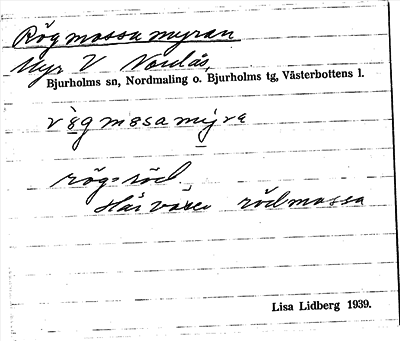 Rögmossamyran
Myr V Nordås,
Bjurholms sn, Nordmaling o. Bjurholms tg, Västerbottens l.
rög=röd.
Här växer rödmossa
Lisa Lidberg 1939.